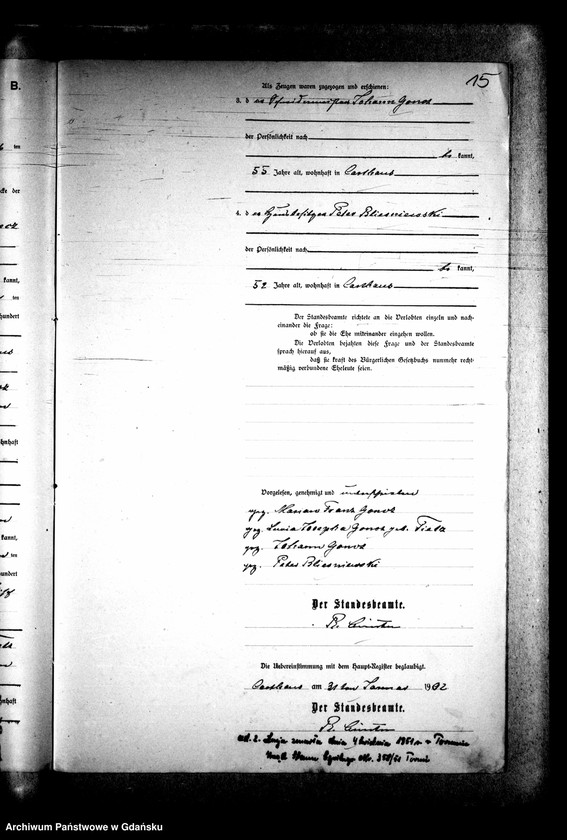 15
B.
Als Zeugen waren zugezogen und erschienen:
3. d er Johann Gonos
der Persönlichkeit nach
be kannt,
55 Jahre alt, wohnhaft in Carthaus
4. d er Peter Bliesniewski
der Persönlichkeit nach
be kannt,
52 Jahre alt, wohnhaft in Carthaus
Der Standesbeamte richtete an die Verlobten einzeln und nach-
einander die Frage:
ob sie die Ehe miteinander eingehen wollen.
Die Verlobten bejahten diese Frage und der Standesbeamte
sprach hierauf aus,
daß sie kraft des Bürgerlichen Gesetzbuchs nunmehr recht-
mäßig verbundene Eheleute seien.
Vorgelesen, genehmigt und unterschrieben
gez. Franz Gonos
gez. Josepha Gonos geb.
gez. Johann Gonos
gez. Peter Bliesniewski
Der Standesbeamte.
Die Uebereinstimmung mit dem Haupt-Register beglaubigt.
Carthaus am 31ten Januar 1902
Der Standesbeamte.
ad. 2. zmarła dnia 4 kwietnia 1961 r. w
Urząd Stanu Cywilnego Nr. 358/61
Archiwum Państwowe w Gdańsku